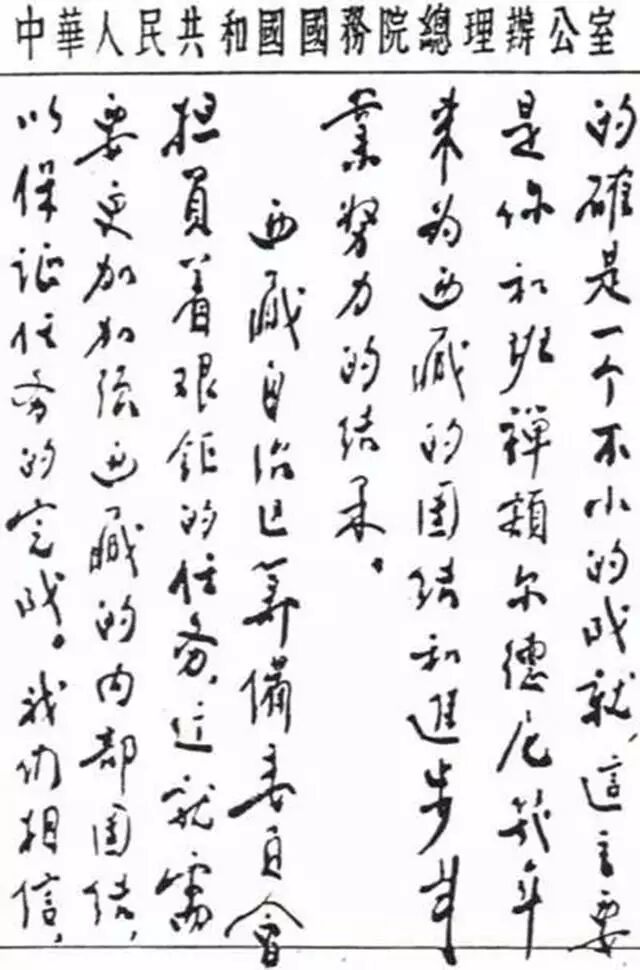 中華人民共和國國務院總理辦公室
的確是一个不小的成就，這主要
是你和班禪額尔德尼幾年
来为西藏的团结和進步事
業努力的结果。
西藏自治区筹備委員會
担負着艰鉅的任务，这就需
要更加加强西藏的内部团结，
以保证任务的完成。我们相信，